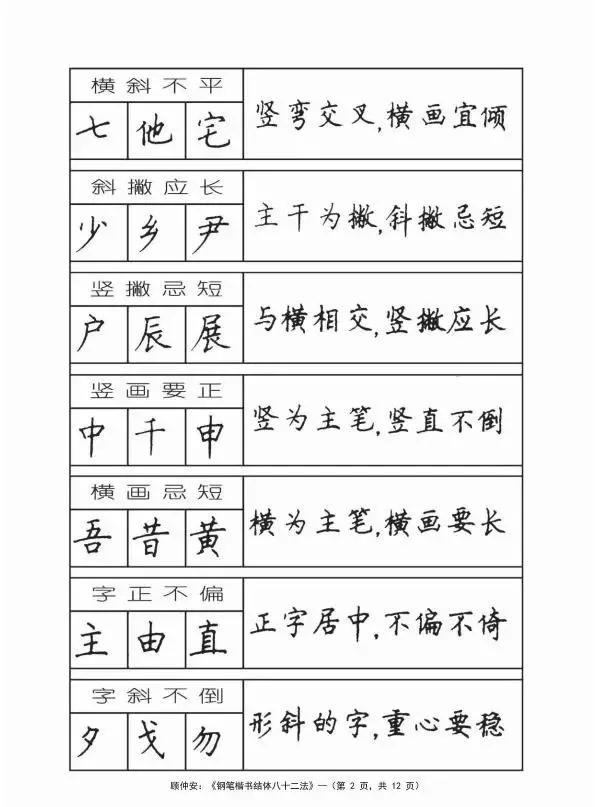 横斜不平
七 他 宅
竖弯交叉,横画宜倾
斜撇应长
少 乡 尹
主干为撇,斜撇忌短
竖撇忌短
户 辰 展
与横相交,竖撇应长
竖画要正
中 千 申
竖为主笔,竖直不倒
横画忌短
吾 昔 黄
横为主笔,横画要长
字正不偏
主 由 直
正字居中,不偏不倚
字斜不倒
夕 戈 勿
形斜的字,重心要稳
顾仲安:《钢笔楷书结体八十二法》—(第 2 页, 共 12 页)